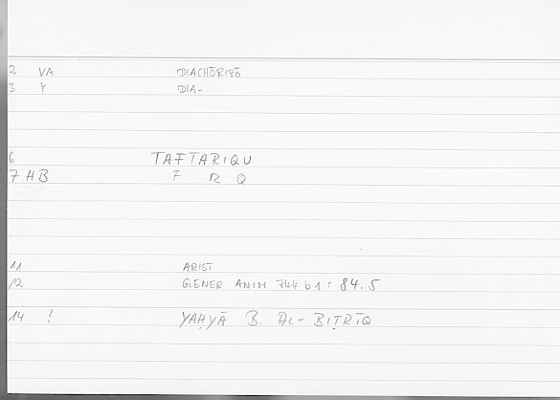 2 VA DIACHŌRIZŌ
3 Y DIA-
6 TAFTARIQU
7 HB F R Q
11 ARIST
12 GENER ANIM 744 b1 : 84.5
14 ! YAḤYĀ B. AL-BIṬRĪQ